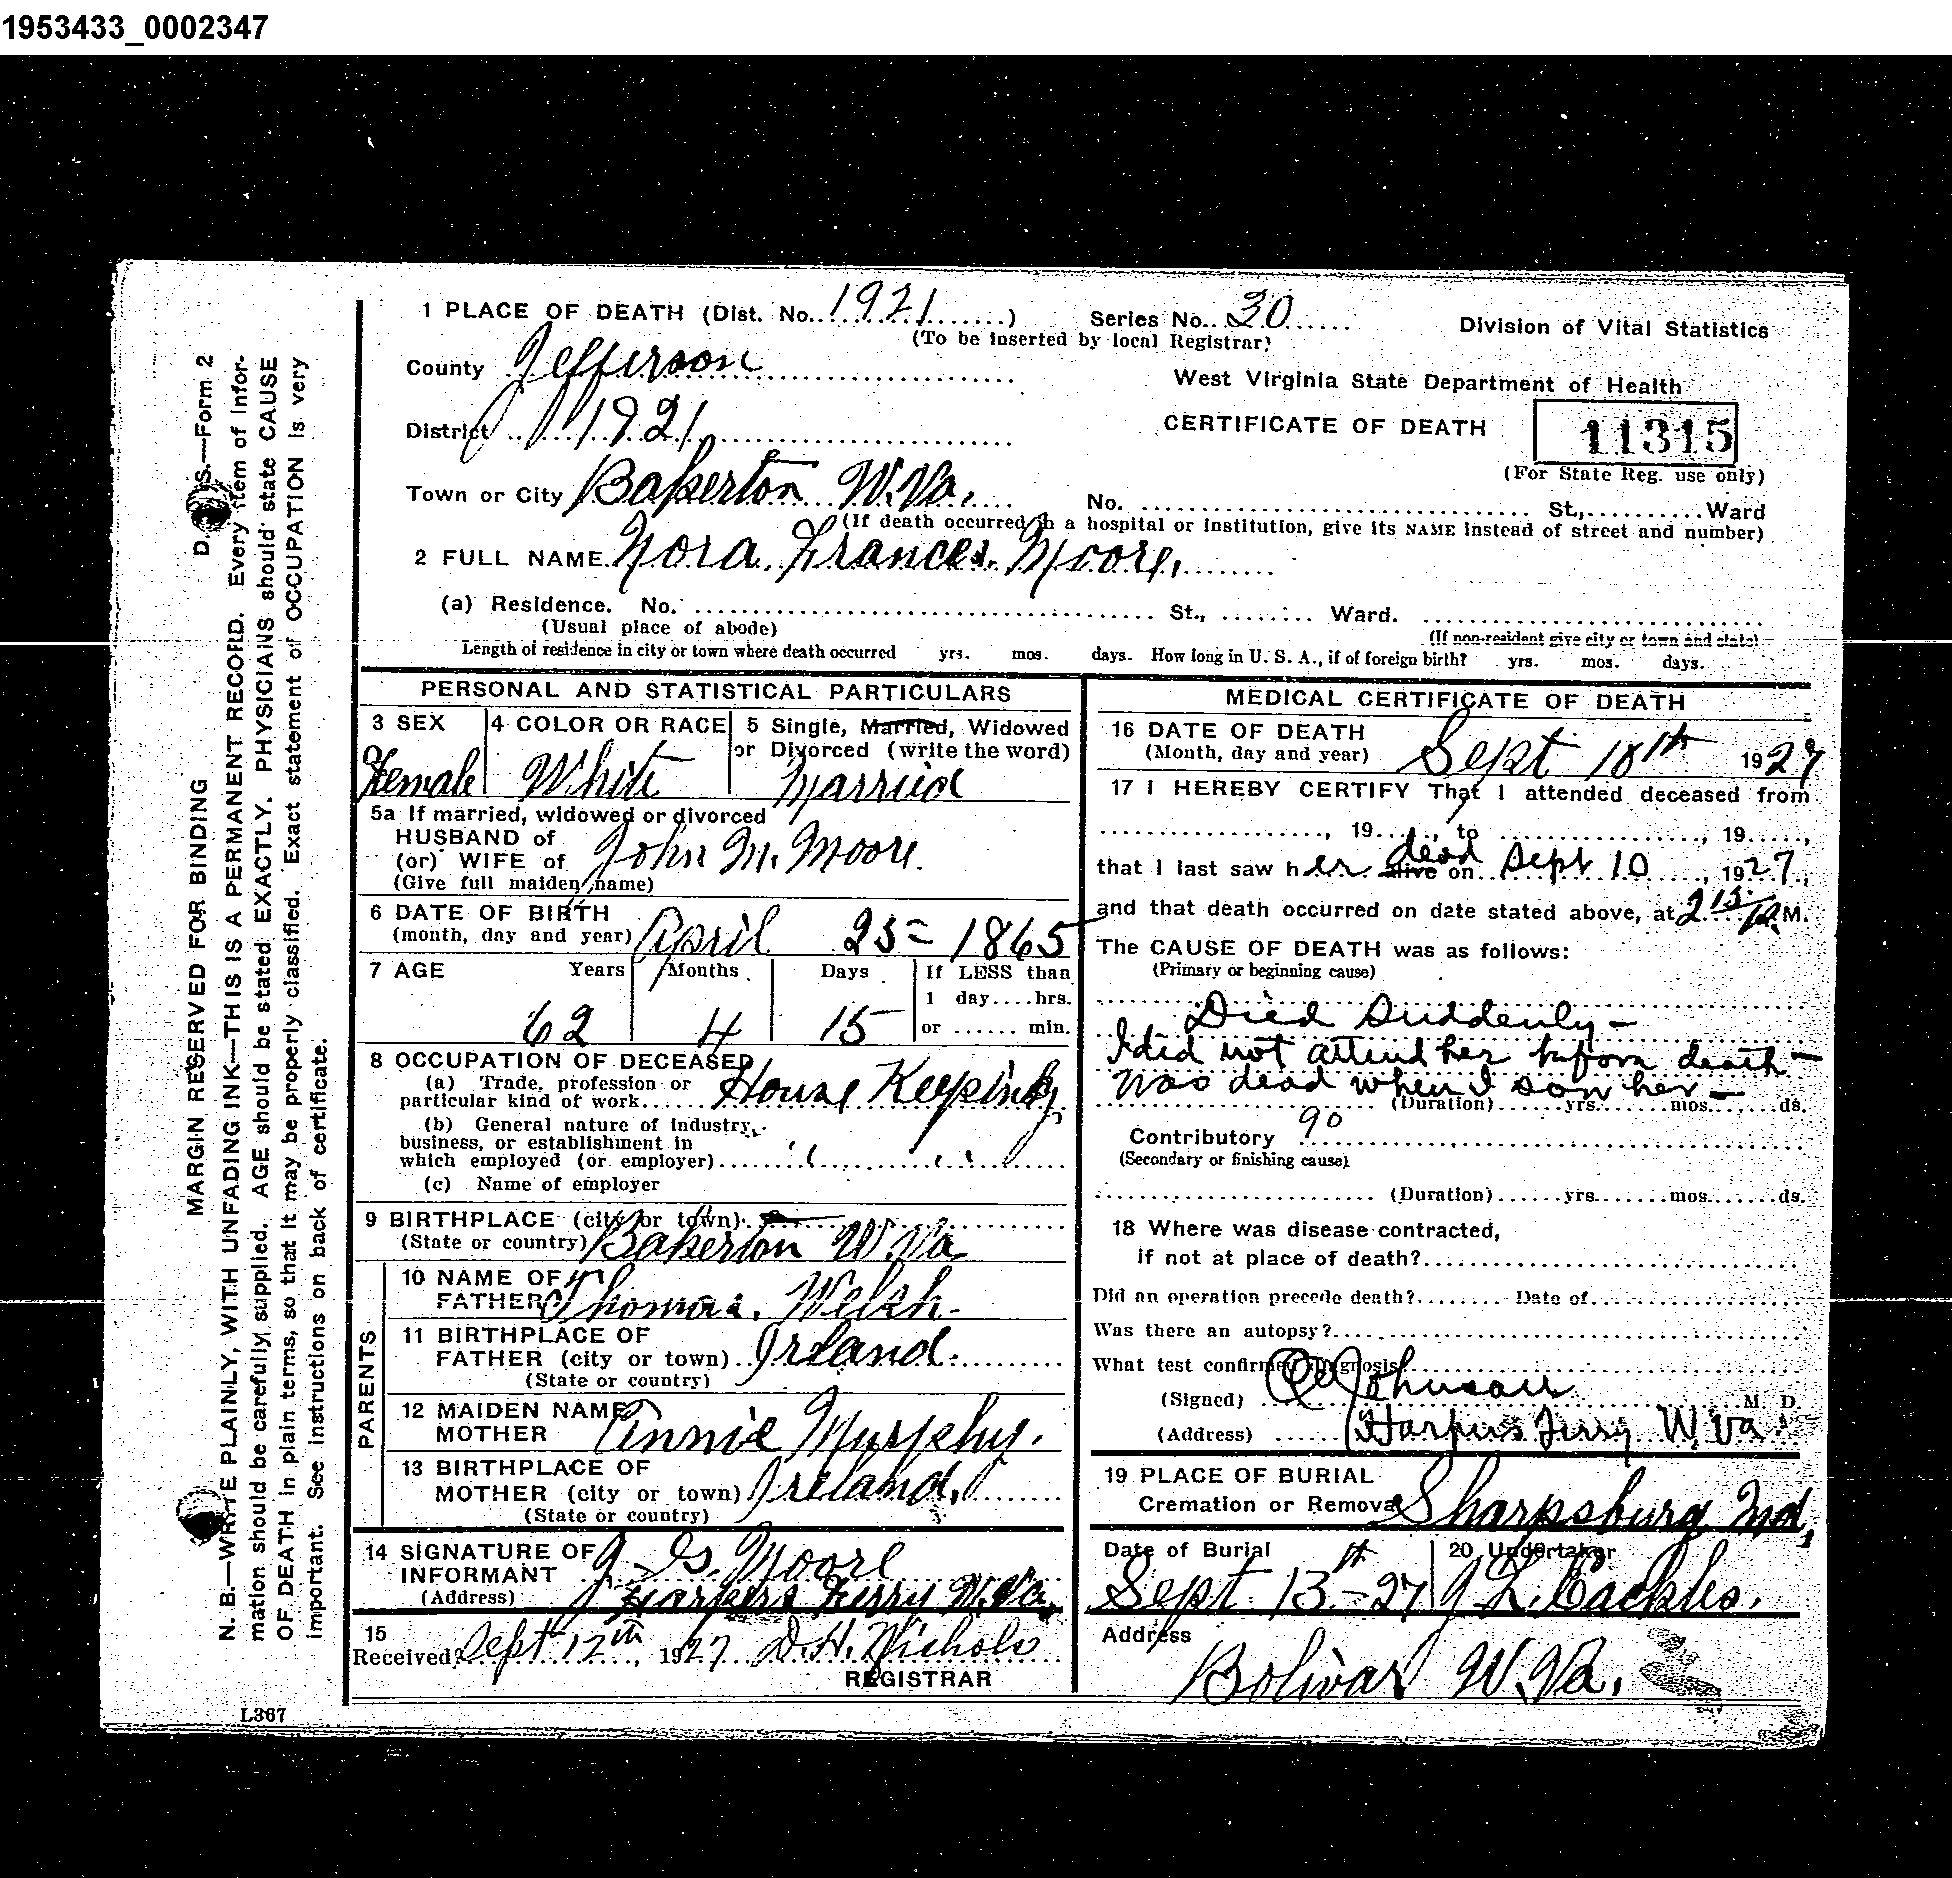 1953433_0002347
1 PLACE OF DEATH (Dist. No. 1921 ) Series No. 30
(To be inserted by local Registrar)
Division of Vital Statistics
County Jefferson
West Virginia State Department of Health
District 1921
CERTIFICATE OF DEATH 11315
(For State Reg. use only)
Town or City Bakerton W.Va. No. St., Ward
(If death occurred in a hospital or institution, give its NAME instead of street and number)
2 FULL NAME Nora Frances Moore.
(a) Residence. No. St., Ward.
(Usual place of abode) (If non-resident give city or town and state)
Length of residence in city or town where death occurred yrs. mos. days. How long in U. S. A., if of foreign birth? yrs. mos. days.
PERSONAL AND STATISTICAL PARTICULARS
3 SEX
Female
4 COLOR OR RACE
White
5 Single, Married, Widowed
or Divorced (write the word)
Married
5a If married, widowed or divorced
HUSBAND of
(or) WIFE of John M. Moore.
(Give full maiden name)
6 DATE OF BIRTH
(month, day and year) April 25 = 1865
7 AGE Years Months Days If LESS than
1 day....hrs.
62 4 15 or ...... min.
8 OCCUPATION OF DECEASED
(a) Trade, profession or
particular kind of work House Keeping
(b) General nature of industry,
business, or establishment in
which employed (or employer) " "
(c) Name of employer
9 BIRTHPLACE (city or town)
(State or country) Bakerton W.Va
PARENTS
10 NAME OF
FATHER Thomas Welsh.
11 BIRTHPLACE OF
FATHER (city or town) Irland.
(State or country)
12 MAIDEN NAME
MOTHER Annie Murphy.
13 BIRTHPLACE OF
MOTHER (city or town) Ireland.
(State or country)
14 SIGNATURE OF
INFORMANT J. G. Moore
(Address) Harpers Ferry W.Va.
15
Received Sept 12th, 1927 D.H. Nichols
REGISTRAR
MEDICAL CERTIFICATE OF DEATH
16 DATE OF DEATH
(Month, day and year) Sept 10th 1927
17 I HEREBY CERTIFY That I attended deceased from
, 19 , to , 19 ,
dead
that I last saw her alive on Sept 10, 1927,
and that death occurred on date stated above, at 2 15/ M.
The CAUSE OF DEATH was as follows:
(Primary or beginning cause)
Died Suddenly —
I did not attend her before death —
Was dead when I saw her —
(Duration) yrs. mos. ds.
Contributory 90
(Secondary or finishing cause)
(Duration) yrs. mos. ds.
18 Where was disease contracted,
if not at place of death?
Did an operation precede death? Date of
Was there an autopsy?
What test confirmed diagnosis
(Signed) Johnson M. D.
(Address) Harpers Ferry W.Va.
19 PLACE OF BURIAL
Cremation or Removal Sharpsburg Md.
Date of Burial
Sept 13th - 27
20 Undertaker
J.L. Cackles.
Address
Bolivar W.Va.
D. S.—Form 2
MARGIN RESERVED FOR BINDING
N. B.—WRITE PLAINLY, WITH UNFADING INK—THIS IS A PERMANENT RECORD. Every item of infor-
mation should be carefully supplied. AGE should be stated EXACTLY. PHYSICIANS should state CAUSE
OF DEATH in plain terms, so that it may be properly classified. Exact statement of OCCUPATION is very
important. See instructions on back of certificate.
L367